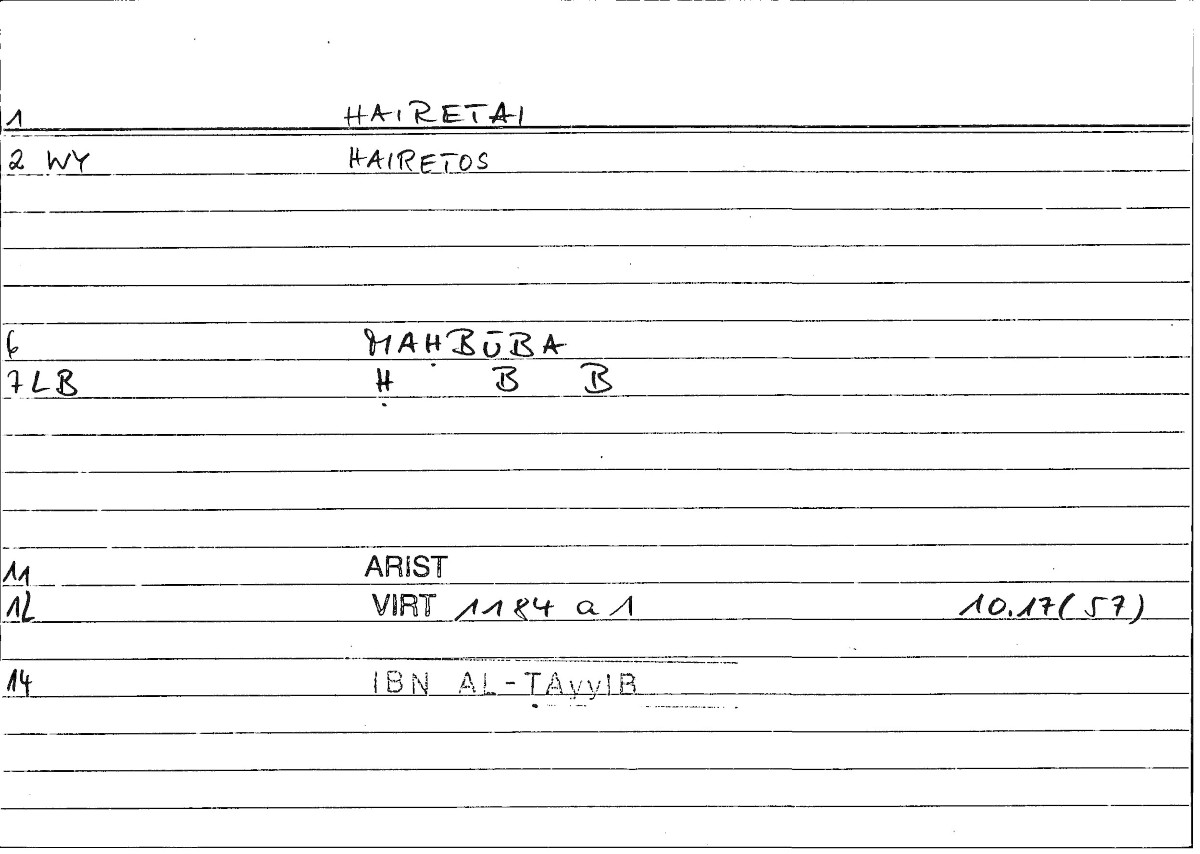 1 HAIRETAI
2 WY HAIRETOS
6 MAḤBŪBA
7 LB Ḥ B B
11 ARIST
12 VIRT 1184 a 1 10.17(57)
14 IBN AL-ṬAyyIB